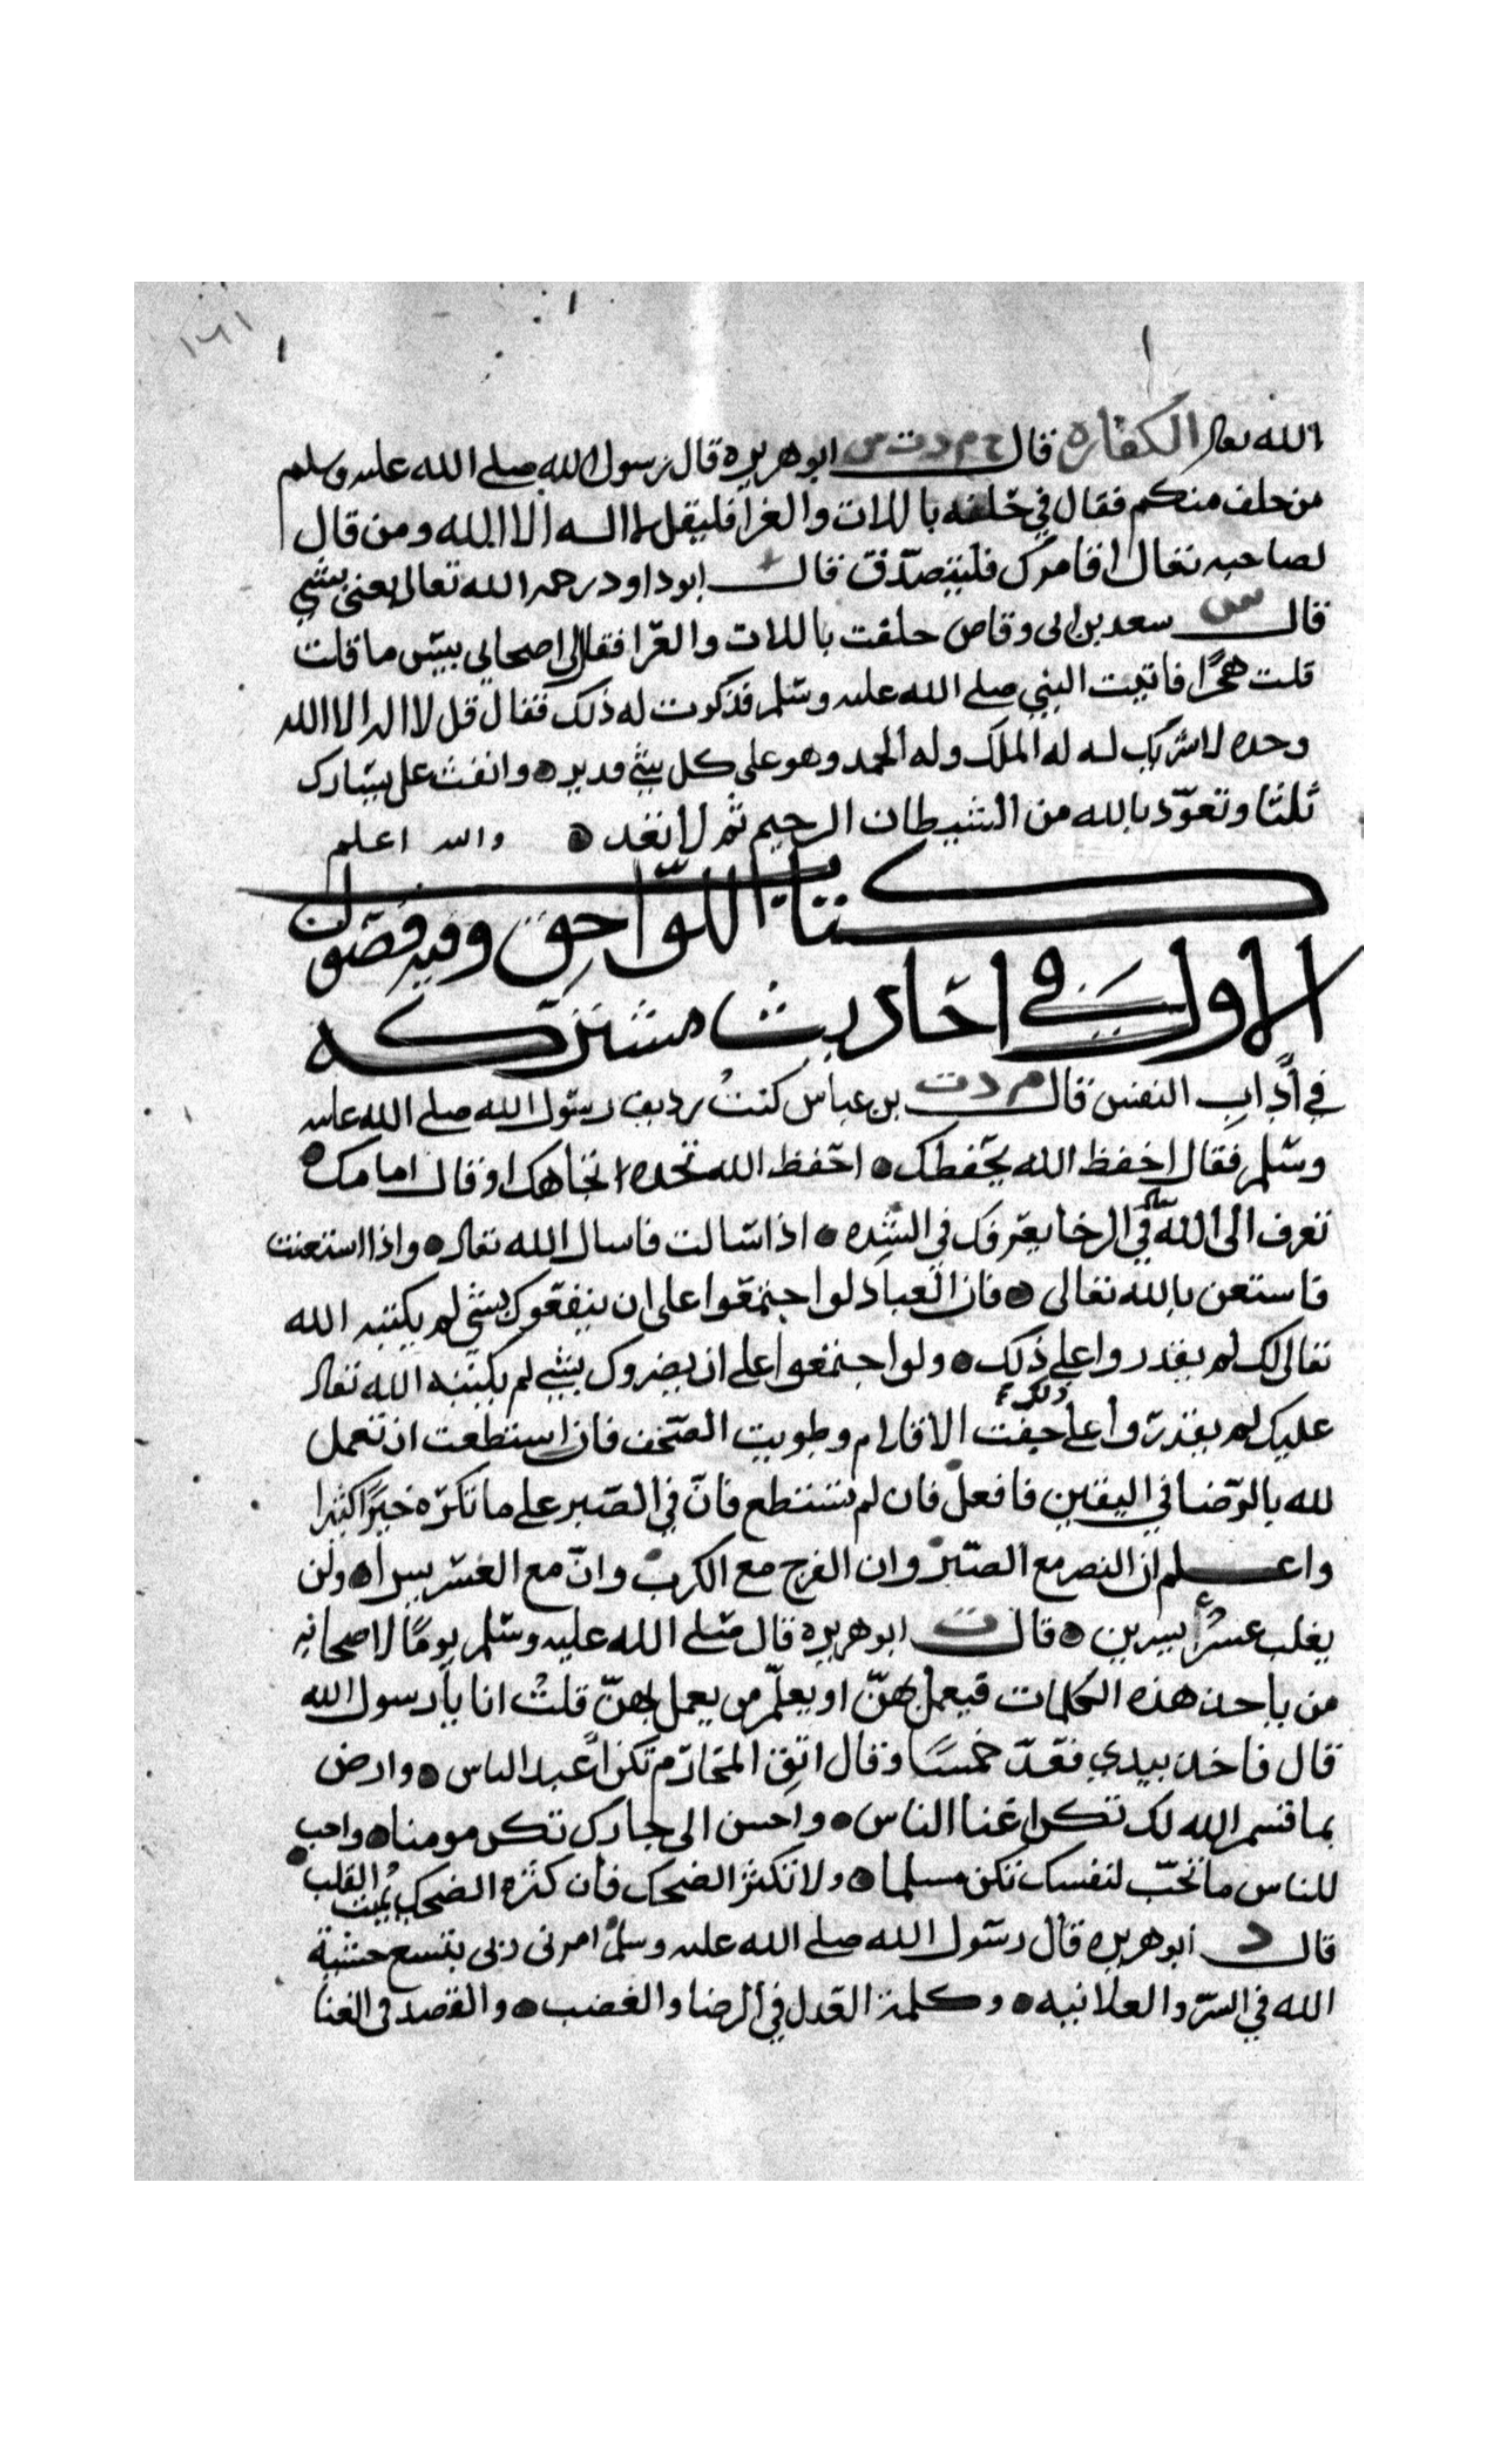 ١٦١
الله تعالى الكفاره قال خ م د ت س ابو هريره قال رسول الله صلى الله عليه وسلم
من حلف منكم فقال في حلفه باللات والعزا فليقل لا اله الا الله ومن قال
لصاحبه تعال اقامرك فليتصدق قال ابو داود رحمه الله تعالى يعني بشي
قال س سعد بن ابى وقاص حلفت باللات والعزا فقال لى اصحابي بيس ما قلت
قلت هجرًا فاتيت النبي صلى الله عليه وسلم فذكرت له ذلك فقال قل لا اله الا الله
وحده لا شريك له له الملك وله الحمد وهو على كل شي قدير وانفث على يسارك
ثلثا وتعوّذ بالله من الشيطان الرجيم ثم لا تعد والله اعلم
كتاب اللواحق وفيه فصول
الاول في احاديث مشتركه
في أداب النفس قال م د ت بن عباس كنتُ رديف رسول الله صلى الله عليه
وسلم فقال احفظ الله يحفظك احفظ الله تجده تجاهك او قال امامك
تعرف الى الله في الرخا يعرفك في الشده اذا سالت فاسال الله تعالى واذا استعنت
فاستعن بالله تعالى فان العباد لو اجتمعوا على ان ينفعوك بشي لم يكتبه الله
تعالى لك لم يقدروا على ذلك ولو اجتمعوا على ان يضروك بشي لم يكتبه الله تعالى
عليك لم يقدروا على ذلك جفت الاقلام وطويت الصحف فان استطعت ان تعمل
لله بالرضا في اليقين فافعل فان لم تستطع فانّ في الصبر على ما تكره خيرًا كثيرا
واعلم ان النصر مع الصبر وان الفرج مع الكرب وانّ مع العسر يسرا ولن
يغلب عسرُ يسرين قال ت ابو هريره قال صلى الله عليه وسلم يومًا لاصحابه
من ياخذ هذه الكلمات فيعمل بهنّ او يعلّم من يعمل بهنّ قلتُ انا يا رسول الله
قال فاخذ بيدي فعدّ خمسًا وقال اتق المحارم تكن اعبد الناس وارض
بما قسم الله لك تكن اغنا الناس واحسن الى جارك تكن مومنا واحب
للناس ما تحبّ لنفسك تكن مسلما ولا تكثر الضحك فان كثره الضحك تميت القلب
قال د ابو هريره قال رسول الله صلى الله عليه وسلم امرنى ربى بتسع خشية
الله في السرّ والعلانيه وكلمة العدل في الرضا والغضب والقصد فى الغنا